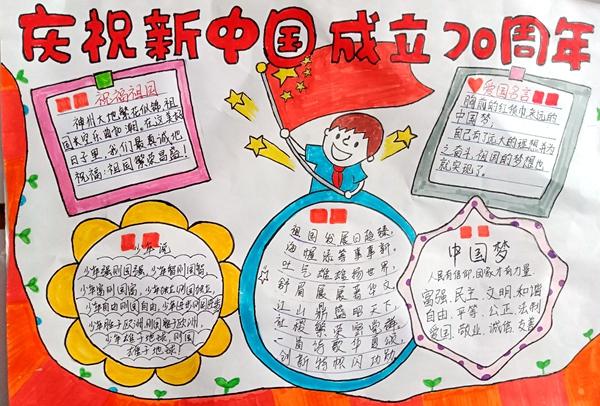 庆祝新中国成立70周年
祝福祖国
神州大地繁花似锦祖
国长空乐曲如潮。在这美好
日子里,我们最真诚地
祝福:祖国繁荣昌盛!
爱国名言
胸前的红领巾
中国梦
自己有了远大的理想并为
之奋斗,祖国的梦想也
就实现了。
少年说
少年强则国强,少年智则国智,
少年富则国富,少年独立则国独立,
少年自由则国自由,少年进步则国进步
少年胜于欧洲,则国胜于欧洲,
少年雄于地球,则国
雄于地球!
祖国发展日趋臻,
海晏添筹事事新。
吐气雄雄扬世界,
舒眉展展著华文。
江山鼎盛昭天下,
社稷繁荣
创新特帜闪功勋
中国梦
人民有信仰,国家才有力量
富强、民主、文明、和谐
自由、平等、公正、法制
爱国、敬业、诚信、友善